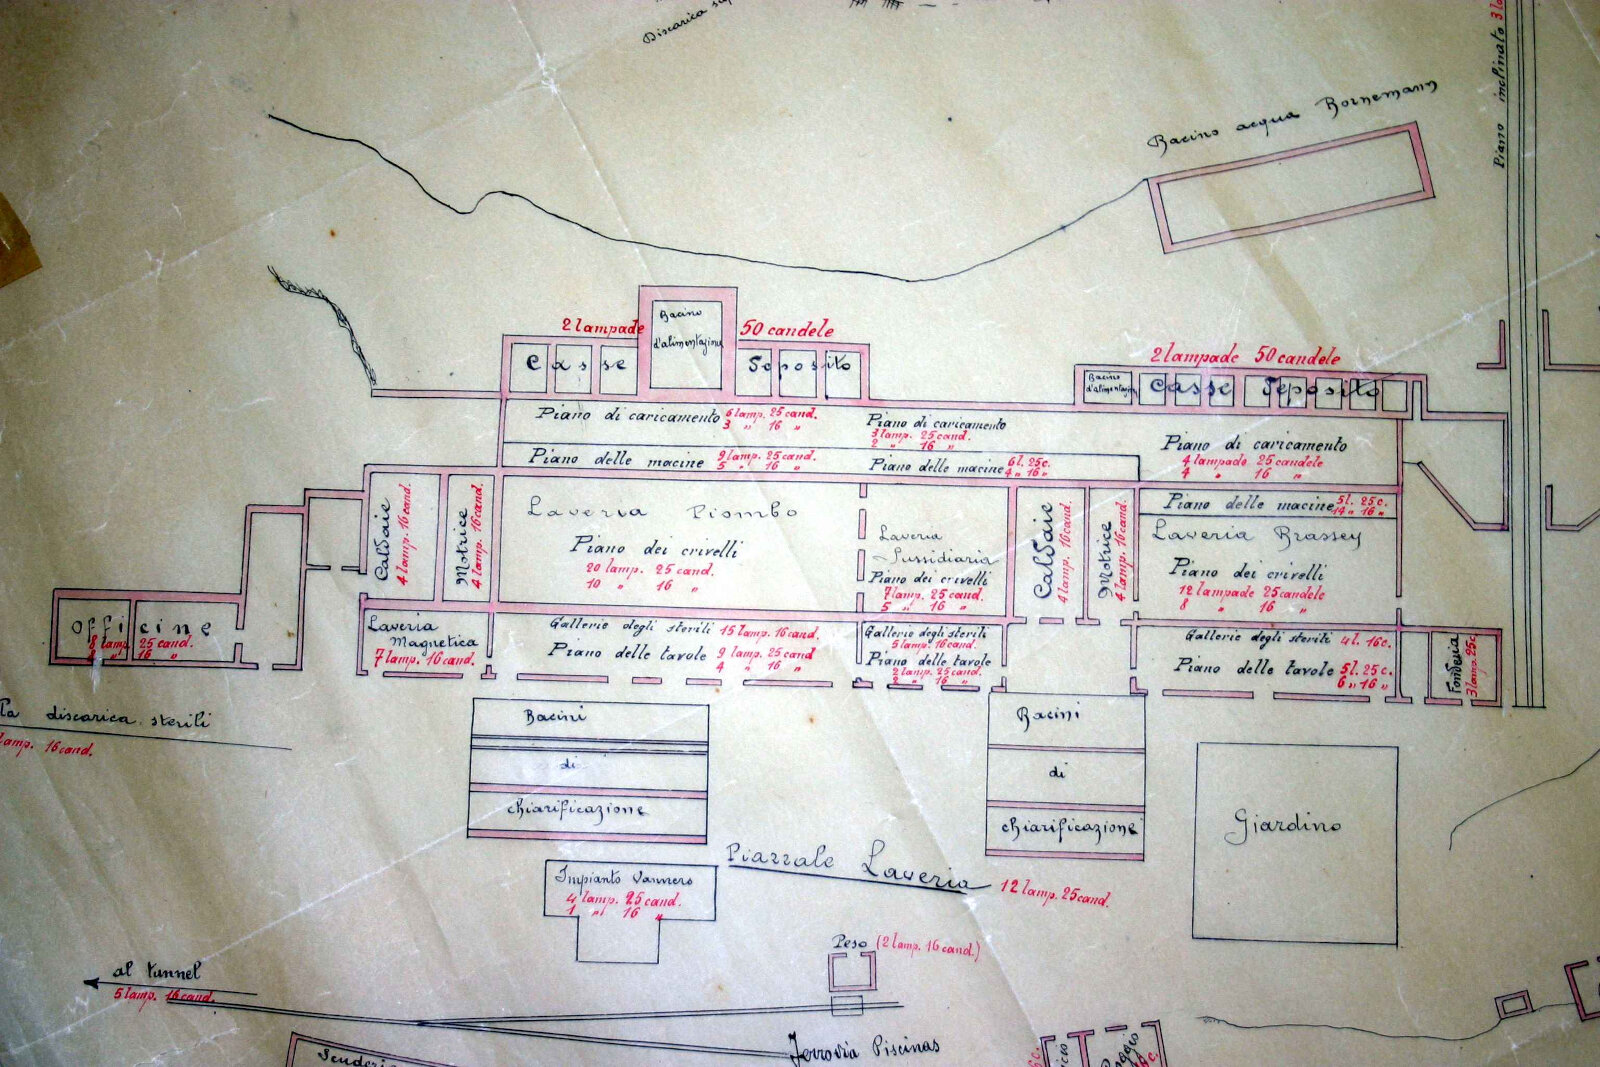 Discarica
Piano inclinato 3
Bacino acqua Bornemann
2 lampade
Bacino
d'alimentazione
50 candele
Casse
Deposito
2 lampade 50 candele
Bacino
d'alimentazione
Casse Deposito
Piano di caricamento 6 lamp. 25 cand.
3 " 16 "
Piano di caricamento
3 lamp. 25 cand.
2 " 16 "
Piano di caricamento
4 lampade 25 candele
4 " 16 "
Piano delle macine 9 lamp. 25 cand.
5 " 16 "
Piano delle macine 6 l. 25 c.
4 " 16 "
Piano delle macine 5 l. 25 c.
14 " 16 "
Caldaie
4 lamp. 16 cand.
Motrice
4 lamp. 16 cand.
Laveria Piombo
Piano dei crivelli
20 lamp. 25 cand.
10 " 16 "
Laveria
Sussidiaria
Piano dei crivelli
7 lamp. 25 cand.
5 " 16 "
Caldaie
4 lamp. 16 cand.
Motrice
4 lamp. 16 cand.
Laveria Brassey
Piano dei crivelli
12 lampade 25 candele
8 " 16 "
Officine
8 lamp. 25 cand.
8 " 16 "
Laveria
Magnetica
7 lamp. 16 cand.
Gallerie degli sterili 15 lamp. 16 cand.
Piano delle tavole 9 lamp. 25 cand
4 " 16 "
Gallerie degli sterili
5 lamp. 16 cand.
Piano delle tavole
2 lamp. 25 cand.
2 " 16 "
Gallerie degli sterili 4 l. 16 c.
Piano delle tavole 5 l. 25 c.
6 " 16 "
Fonderia
3 lamp. 25 c.
la discarica sterili
lamp. 16 cand.
Bacini
di
chiarificazione
Bacini
di
chiarificazione
Giardino
Piazzale Laveria 12 lamp. 25 cand.
Impianto Vannero
4 lamp. 25 cand.
1 " 16 "
Peso (2 lamp. 16 cand.)
al tunnel
5 lamp. 16 cand.
Ferrovia Piscinas